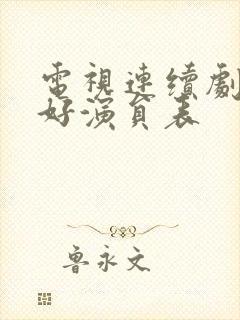 電視連續劇
好演員表
魯永文